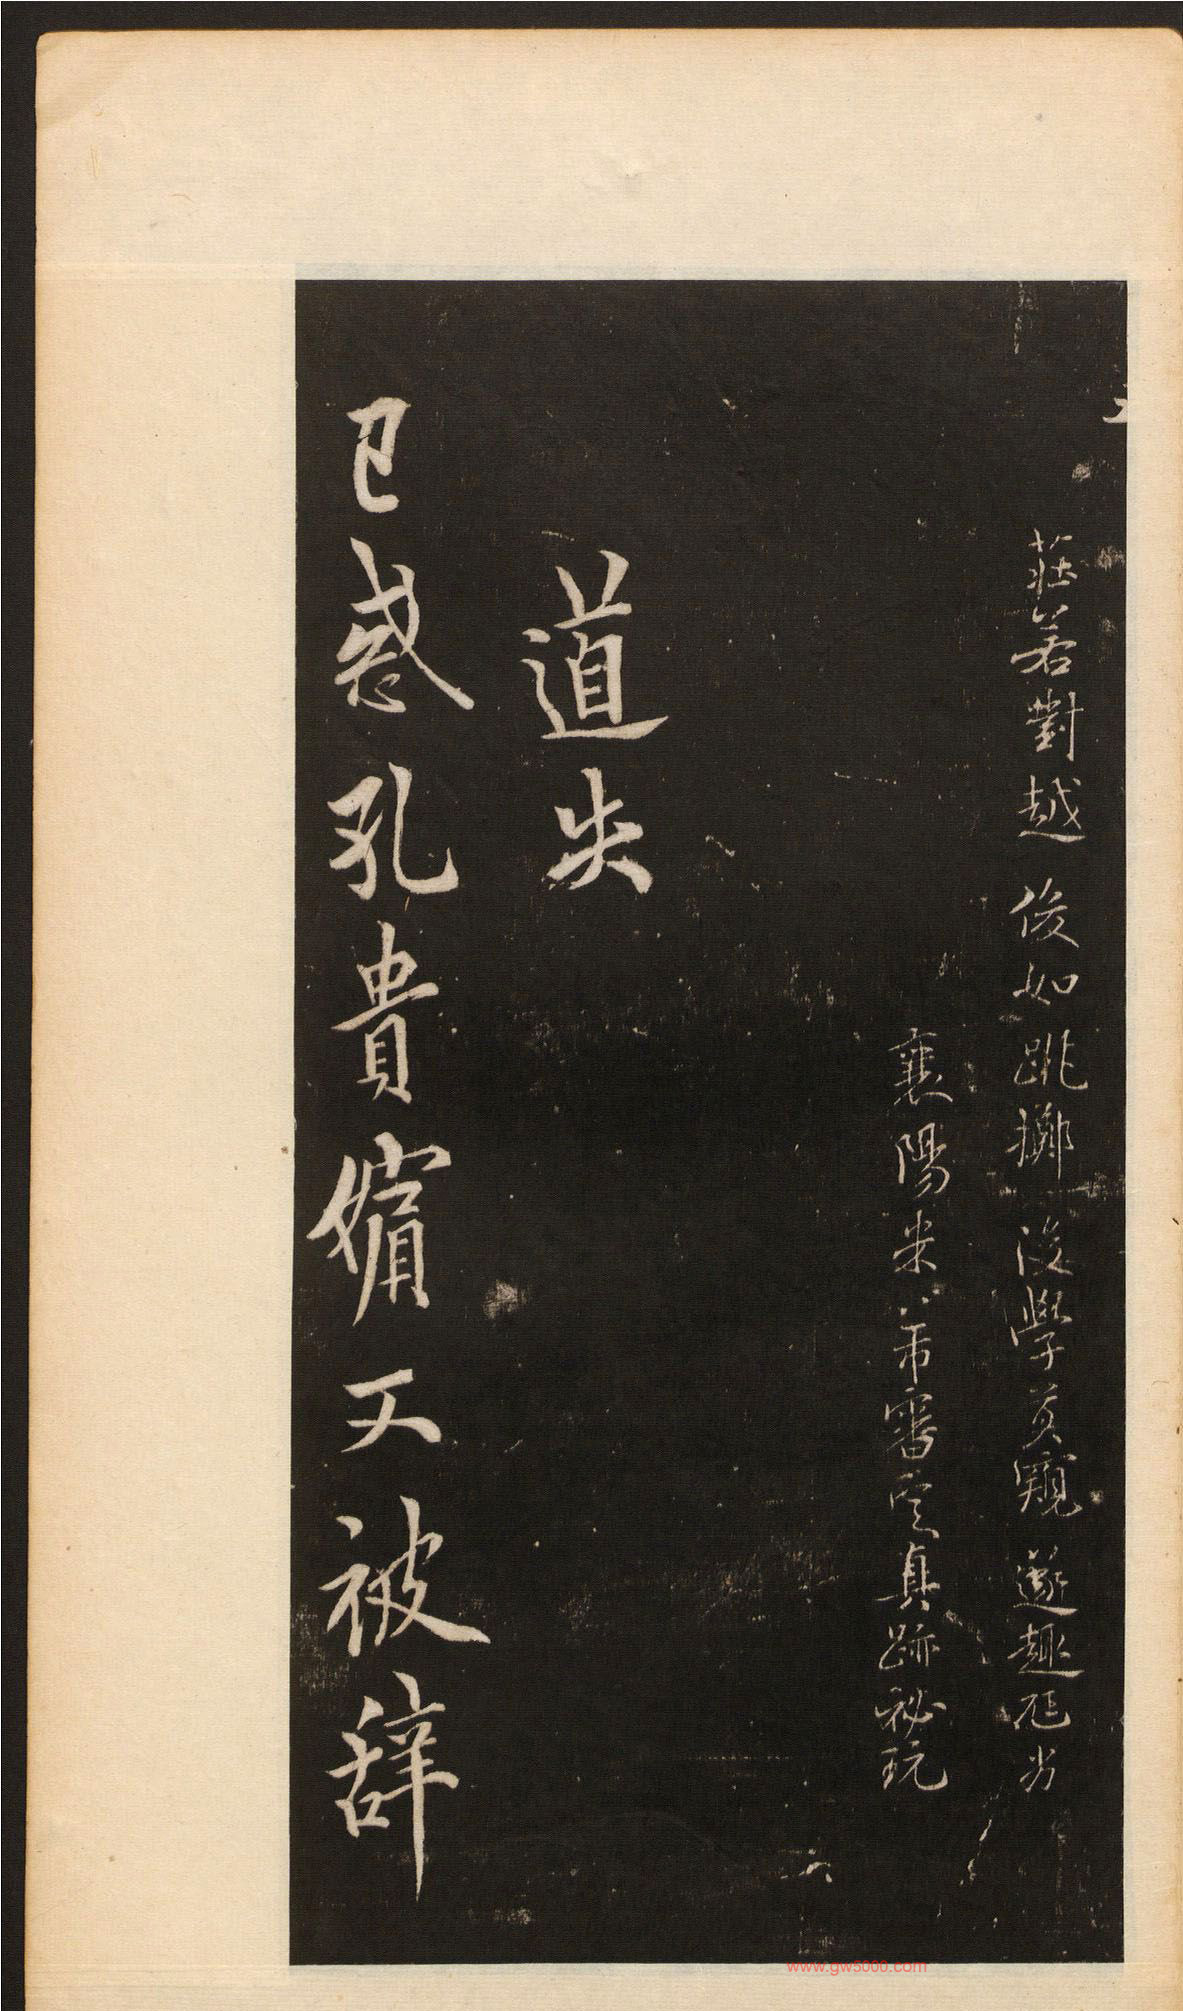 莊若對越 俊如跳擲 後學莫窺 遂趣尫劣
襄陽米芾審定真跡祕玩
道失
已惑孔貴孀不被辞
www.gw5000.com